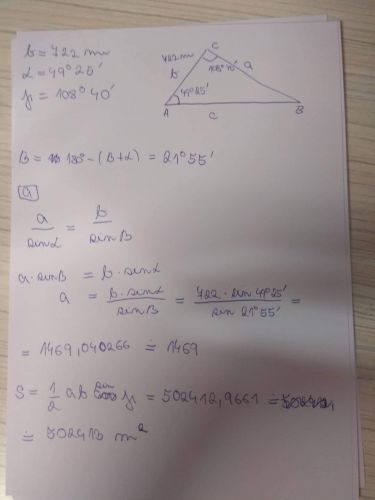 b = 722 m
α = 49° 25'
γ = 108° 40'
C
722 m
b
108° 40'
a
49° 25'
A
c
B
B = 180° - (B+α) = 21° 55'
a
a/sinα = b/sinB
a · sinB = b · sinα
a = b · sinα / sinB = 722 · sin 49° 25' / sin 21° 55' =
= 1469,040266 ≐ 1469
S = 1/2 ab sin γ = 502412,9661 ≐
≐ 502413 m²